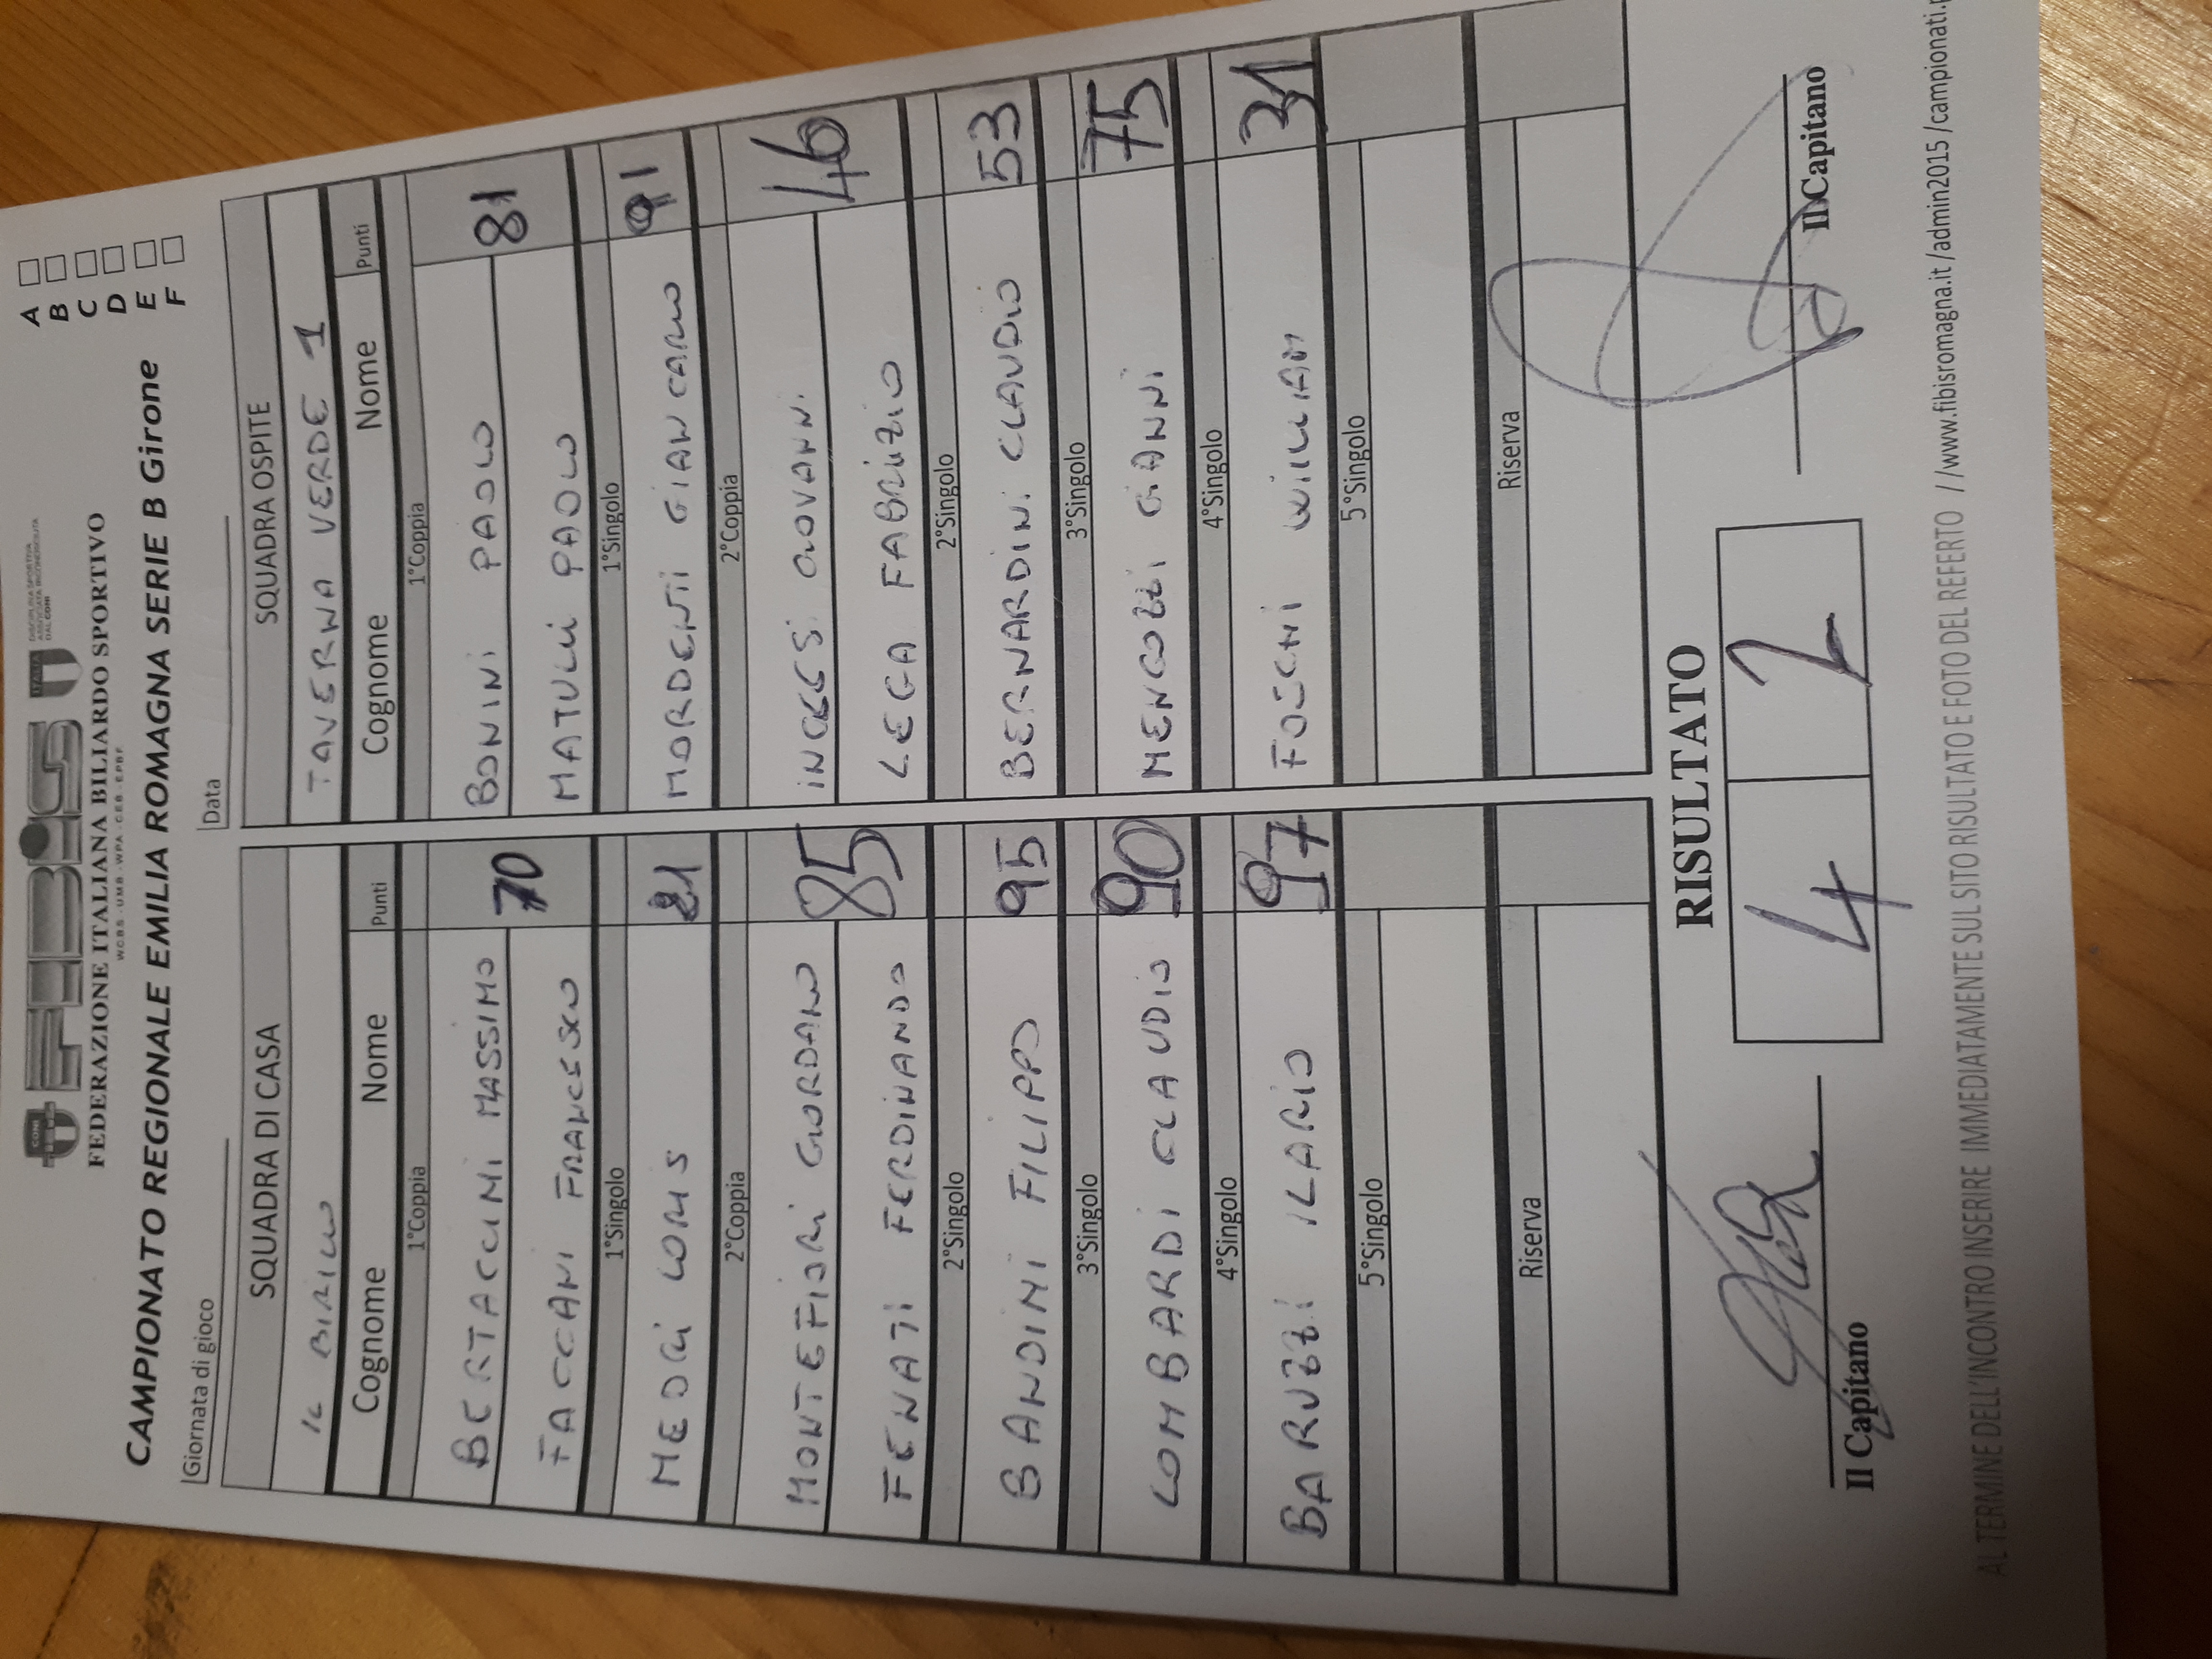 CONI
FEDERAZIONE ITALIANA BILIARDO SPORTIVO
W.C.B.S. - U.M.B. - W.P.A. - C.E.B. - E.P.B.F.
ITALIA
DISCIPLINA SPORTIVA
ASSOCIATA RICONOSCIUTA
DAL CONI
CAMPIONATO REGIONALE EMILIA ROMAGNA SERIE B Girone
A
B
C
D
E
F
Giornata di gioco
Data
SQUADRA DI CASA
IL BIRILLO
Cognome Nome Punti
1°Coppia
BERTACCINI MASSIMO
70
FACCANI FRANCESCO
1°Singolo
MEDRI LORIS
2°Coppia
MONTEFIORI GIORDANO
85
FENATI FERDINANDO
2°Singolo
BANDINI FILIPPO 95
3°Singolo
LOMBARDI CLAUDIO 90
4°Singolo
BARUZZI ILARIO 97
5°Singolo
Riserva
SQUADRA OSPITE
TAVERNA VERDE 1
Cognome Nome Punti
1°Coppia
BONINI PAOLO
81
MATULLI PAOLO
1°Singolo
MORDENTI GIANCARLO 91
2°Coppia
GIOVANNI
46
LEGA FABRIZIO
2°Singolo
BERNARDINI CLAUDIO 53
3°Singolo
MENGOZZI GIANNI 75
4°Singolo
FOSCHI WILLIAM 31
5°Singolo
Riserva
RISULTATO
4 2
Il Capitano
Il Capitano
AL TERMINE DELL'INCONTRO INSERIRE IMMEDIATAMENTE SUL SITO RISULTATO E FOTO DEL REFERTO //www.fibisromagna.it /admin2015 /campionati.